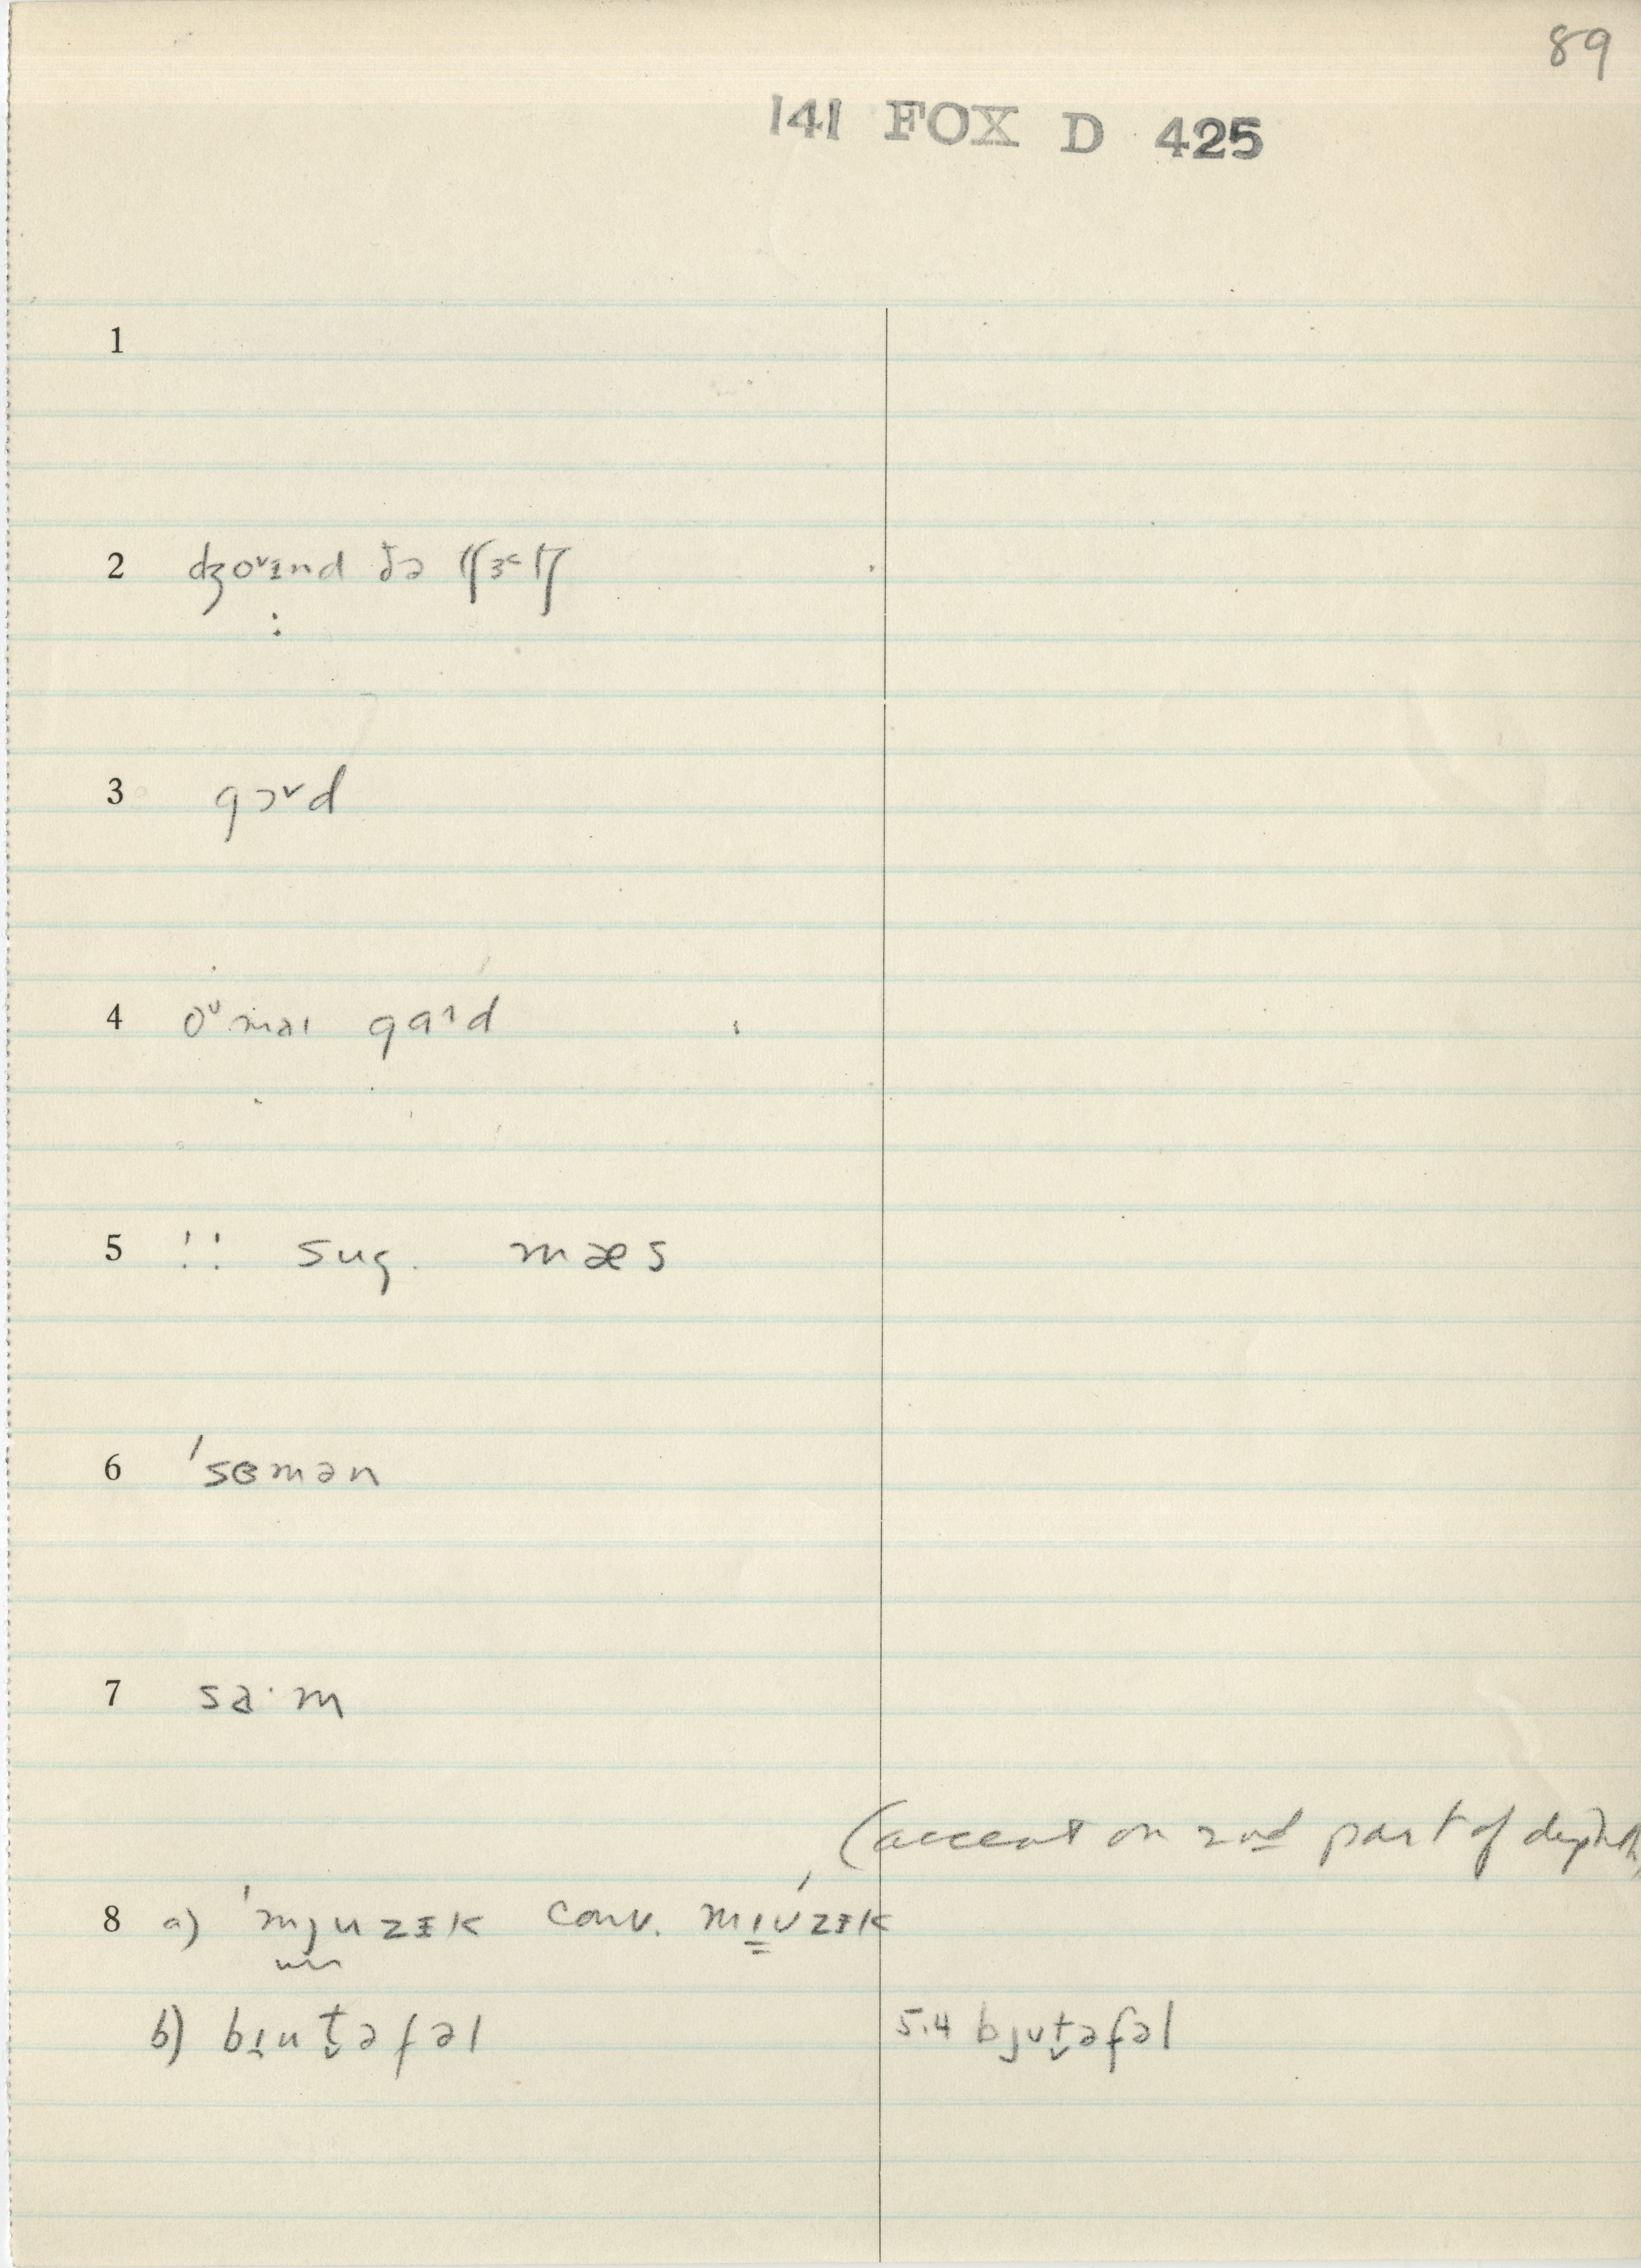 89
141 FOX D 425
1
2 dʒoᵛɪnd ðə tʃɜ˞tʃ
3 gɔˇd
4 oᵘ maɪ gaɹd
5 !! sug. mæs
6 'sɐmən
7 sa·m
(accent on 2nd part of diphth.
8 a) 'mjuzɪk conv. mɪúzɪk
b) bɪut̬əfəl 5.4 bjut̬əfəl